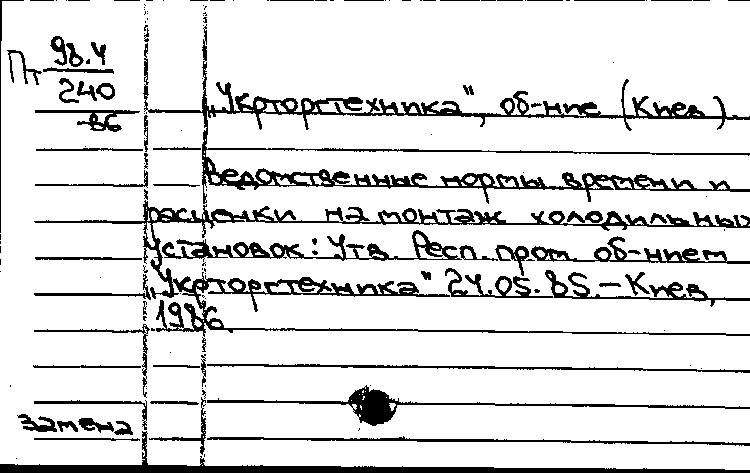 Пт 98.4
240
-86
„Укрторгтехника", об-ние (Киев).
Ведомственные нормы времени и
расценки на монтаж холодильных
установок: Утв. Респ. пром. об-нием
„Укрторгтехника" 24.05.85.-Киев,
1986.
замена